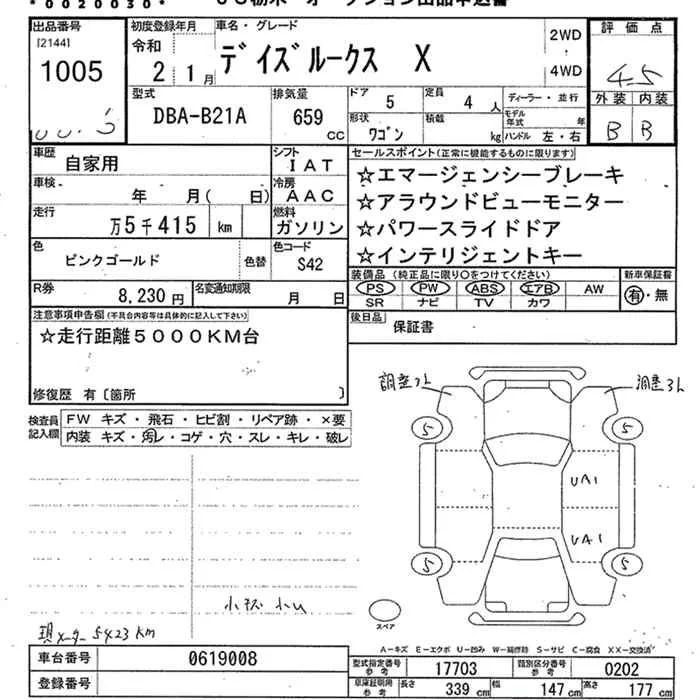 *0020030*
出品番号 初度登録年月 車名・グレード 評価点
[2144] 令和
1005 2 1月 デイズルークス X 2WD 4WD 4.5
型式 排気量 ドア 定員 ディーラー・並行 外装 内装
DBA-B21A 659 CC 5 4人 モデル年式 年 B B
形状 ワゴン 積載 kg ハンドル 左・右
車歴 自家用 シフト IAT セールスポイント(正常に機能するものに限ります)
車検 年 月( 日) 冷房 AAC ☆エマージェンシーブレーキ
走行 万5千415 km 燃料 ガソリン ☆アラウンドビューモニター
☆パワースライドドア
色 ピンクゴールド 色替 色コード S42 ☆インテリジェントキー
R券 8,230円 名変通知期限 月 日 装備品(純正品に限り○をつけてください) 新車保証書
PS PW ABS エアB AW 有・無
SR ナビ TV カワ
注意事項申告欄(不具合内容等は具体的に記入して下さい) 後日品 保証書
☆走行距離5000KM台
修復歴 有〔箇所 〕
検査員記入欄 FW キズ・飛石・ヒビ割・リペア跡・×要
内装 キズ・汚レ・コゲ・穴・スレ・キレ・破レ
5 5
UA1
UA1
5 5
スペア
現メーター 5423 km
A-キズ E-エクボ U-凹み W-補修跡 S-サビ C-腐食 XX-交換済
車台番号 0619008 型式指定番号 参考 17703 類別区分番号 参考 0202
登録番号 車庫証明用 参考 長さ 339cm 幅 147cm 高さ 177cm